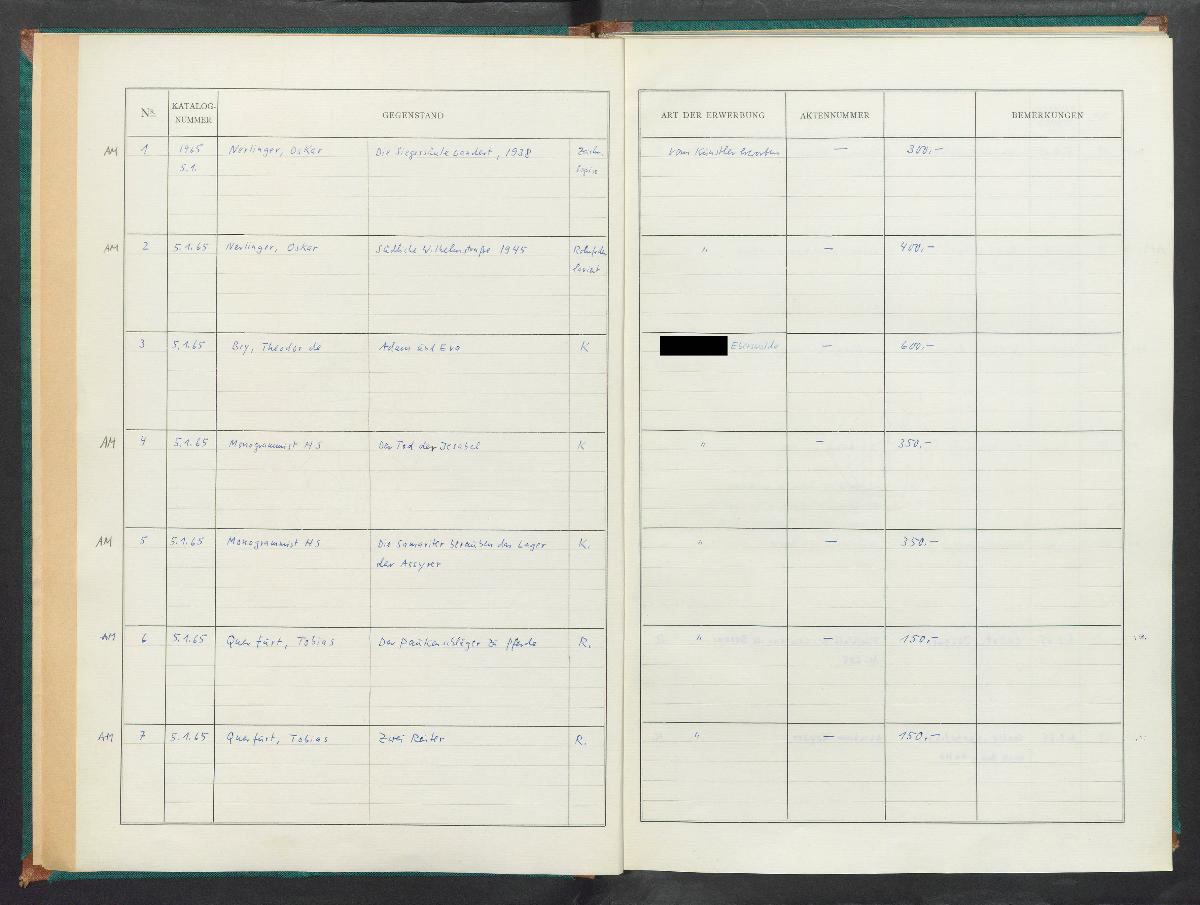 Nr. KATALOG- NUMMER GEGENSTAND ART DER ERWERBUNG AKTENNUMMER BEMERKUNGEN
AM 1 1965 Nerlinger, Oskar Die Siegessäule wandert, 1938 Zeichn. vom Künstler erworben — 300,-
5.1. Sepia
AM 2 5.1.65 Nerlinger, Oskar Südliche Wilhelmstraße 1945 Rohrfeder " — 400,-
laviert
3 5.1.65 Bry, Theodor de Adam und Eva K Eberswalde — 600,-
AM 4 5.1.65 Monogrammist HS Der Tod der Jesabel K " — 350,-
AM 5 5.1.65 Monogrammist HS Die Samariter berauben das Lager K. " — 350,-
der Assyrer
AM 6 5.1.65 Querfurt, Tobias Der Paukenschläger zu Pferde R. " — 150,-
AM 7 5.1.65 Querfurt, Tobias Zwei Reiter R. " — 150,-